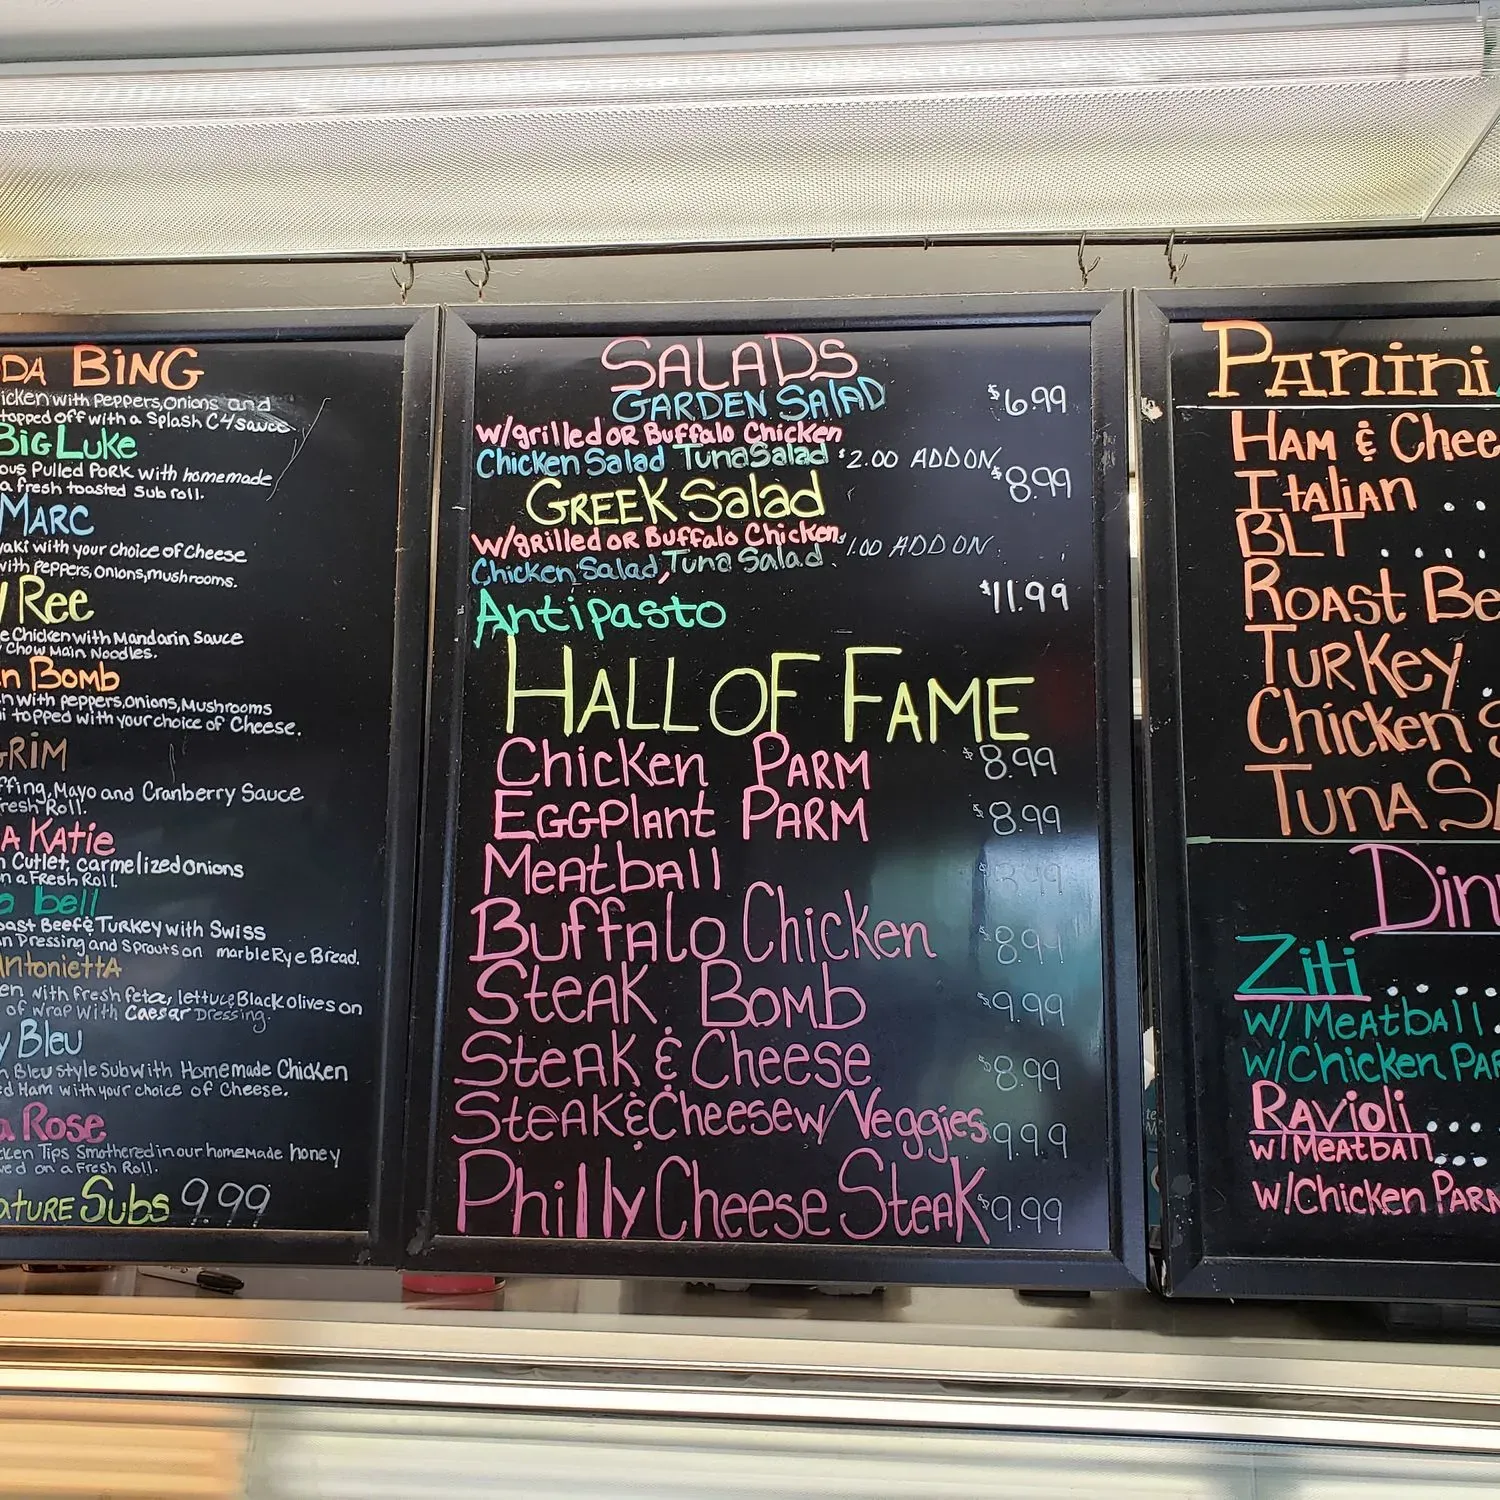 DA BING
icken with Peppers, Onions and
topped off with a Splash C4 sauce
Big Luke
ous Pulled Pork with homemade
a fresh toasted Sub roll.
MARC
yaki with your choice of Cheese
with Peppers, Onions, mushrooms.
Ree
e Chicken with Mandarin Sauce
Chow Main Noodles.
n Bomb
n with Peppers, Onions, Mushrooms
i topped with your choice of Cheese.
GRIM
ffing, Mayo and Cranberry Sauce
resh Roll.
A Katie
n Cutlet, Carmelized Onions
n a Fresh Roll.
a bell
oast Beef & Turkey with Swiss
n Dressing and Sprouts on marble Rye Bread.
AntoniettA
en with fresh feta, lettuce Black olives on
of wrap with Caesar Dressing.
y Bleu
n Bleu style Sub with Homemade Chicken
ed Ham with your choice of Cheese.
a Rose
cken Tips Smothered in our homemade honey
ved on a Fresh Roll.
ature Subs 9.99
SALADS
GARDEN SALAD $6.99
w/grilled or Buffalo Chicken
Chicken Salad Tuna Salad $2.00 ADD ON
GREEK Salad $8.99
w/grilled or Buffalo Chicken $1.00 ADD ON
Chicken Salad, Tuna Salad.
Antipasto $11.99
HALL OF FAME
Chicken PARM $8.99
Eggplant PARM $8.99
Meatball
Buffalo Chicken $8.99
Steak Bomb $9.99
Steak & Cheese $8.99
Steak & Cheese w/Veggies $9.99
Philly Cheese Steak $9.99
Panini
Ham & Chee
Italian ..
BLT ....
Roast Be
Turkey .
Chicken S
Tuna Sa
Din
Ziti ....
w/Meatball.
w/Chicken Par
Ravioli ....
w/Meatball....
w/Chicken Parm